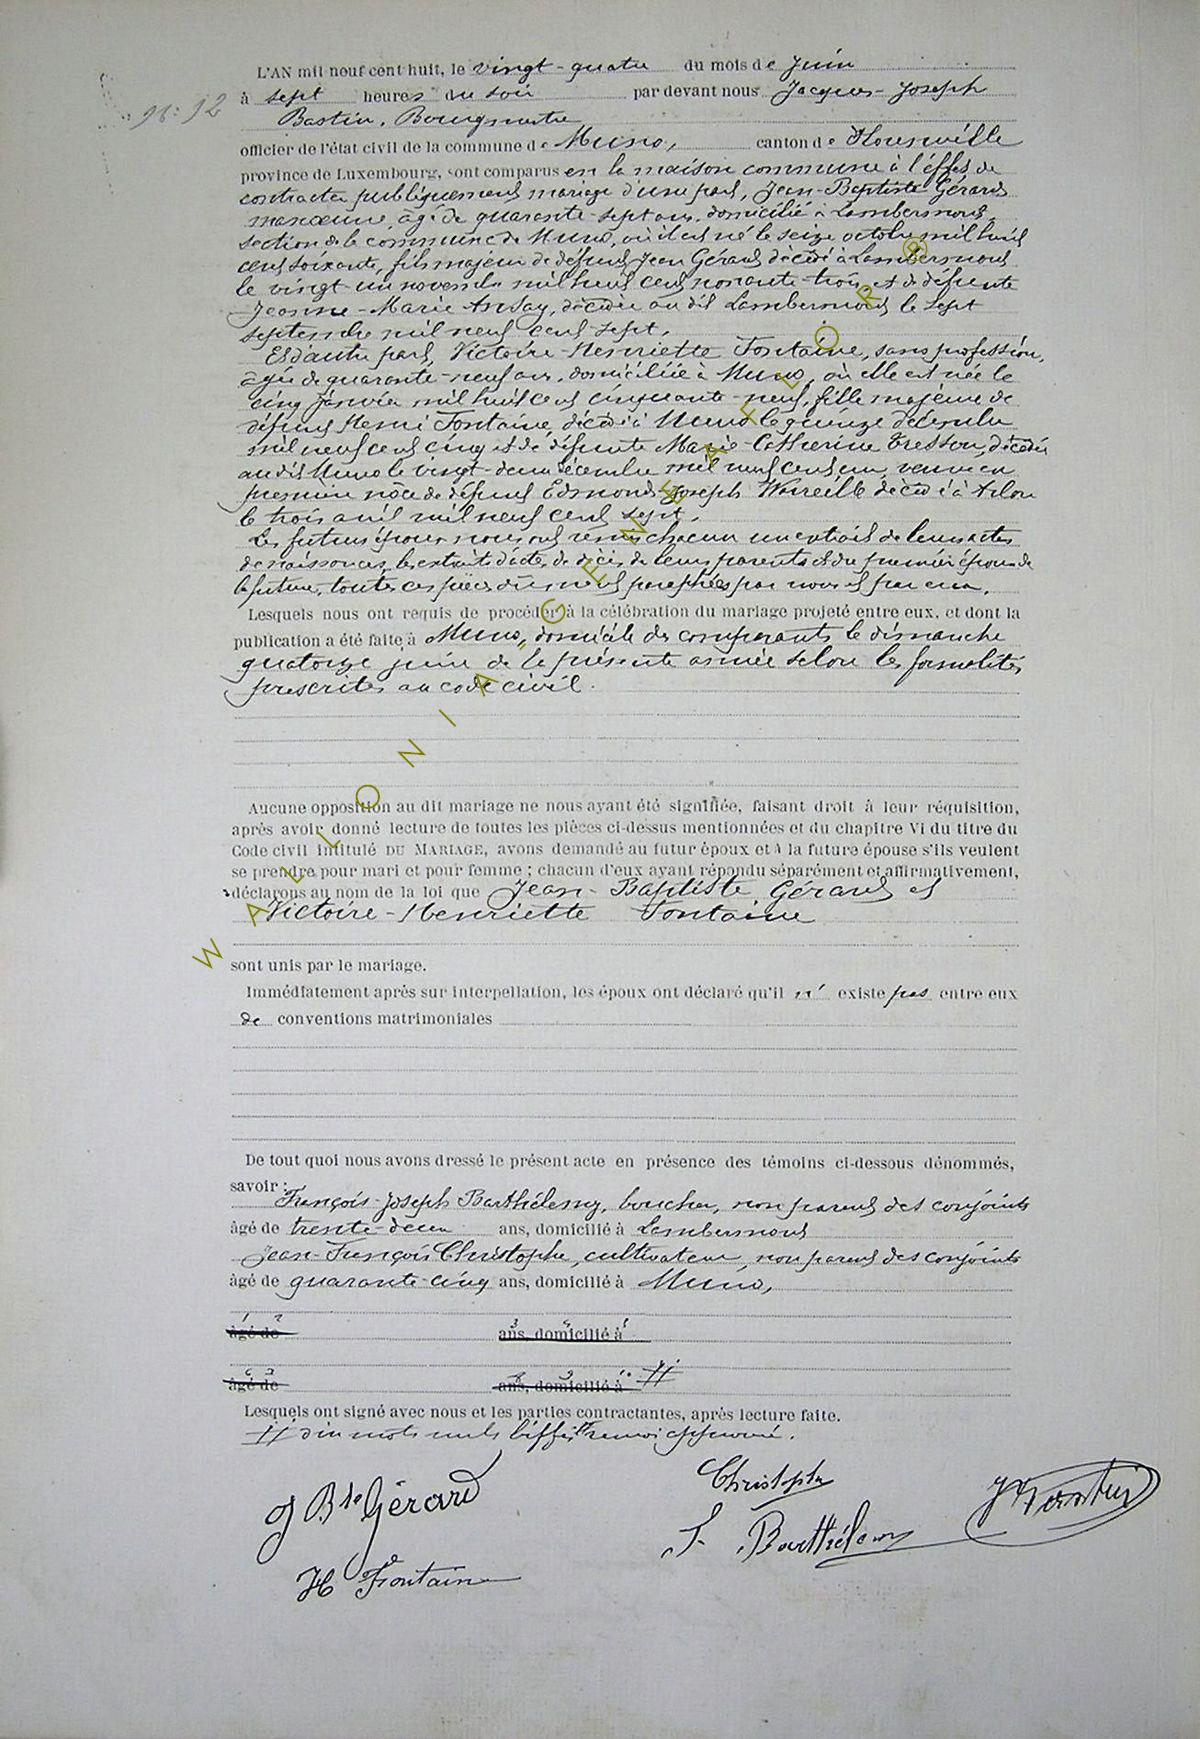 L'AN mil neuf cent huit, le vingt-quatre du mois de Juin
à sept heures du soir par devant nous Jacques-Joseph
Bastin, Bourgmestre
officier de l'état civil de la commune de Muno, canton de Florenville
province de Luxembourg, sont comparus en la maison commune à l'effet de
contracter publiquement mariage d'une part, Jean-Baptiste Gérard
manœuvre, âgé de quarante-sept ans, domicilié à Lambermont,
section de la commune de Muno, où il est né le seize octobre mil huit
cent soixante, fils majeur de défunt Jean Gérard décédé à Lambermont
le vingt un novembre mil huit cent nonante-trois, et de défunte
Jeanne-Marie Ansay, décédée au dit Lambermont le sept
septembre mil neuf cent sept.
Et d'autre part, Victoire-Henriette Fontaine, sans profession,
âgée de quarante-neuf ans, domiciliée à Muno, où elle est née le
cinq janvier mil huit cent cinquante-neuf, fille majeure de
défunt Henri Fontaine, décédé à Muno le quinze décembre
mil neuf cent cinq et de défunte Marie-Catherine Tresson, décédée
au dit Muno le vingt-deux décembre mil neuf cent un, veuve en
première nôce de défunt Edmond-Joseph décédé à Arlon
le trois avril mil neuf cent sept.
Les futurs époux nous ont remis chacun un extrait de leurs actes
de naissances, les extraits d'acte de décès de leurs parents et du premier époux de
la future, toutes ces pièces dûment paraphées par nous et par eux.
Lesquels nous ont requis de procéder à la célébration du mariage projeté entre eux, et dont la
publication a été faite à Muno, domicile des comparants le dimanche
quatorze juin de la présente année selon les formalités
prescrites au code civil.
Aucune opposition au dit mariage ne nous ayant été signifiée, faisant droit à leur réquisition,
après avoir donné lecture de toutes les pièces ci-dessus mentionnées et du chapitre VI du titre du
Code civil intitulé DU MARIAGE, avons demandé au futur époux et à la future épouse s'ils veulent
se prendre pour mari et pour femme ; chacun d'eux ayant répondu séparément et affirmativement,
déclarons au nom de la loi que Jean-Baptiste Gérard et
Victoire-Henriette Fontaine
sont unis par le mariage.
Immédiatement après sur interpellation, les époux ont déclaré qu'il n'existe pas entre eux
de conventions matrimoniales
De tout quoi nous avons dressé le présent acte en présence des témoins ci-dessous dénommés,
savoir :
François-Joseph Barthélemy, boucher, non parent des conjoints
âgé de trente-deux ans, domicilié à Lambermont
Jean-François Christophe, cultivateur, non parent des conjoints
âgé de quarante-cinq ans, domicilié à Muno,
âgé de ans, domicilié à
âgé de ans, domicilié à
Lesquels ont signé avec nous et les parties contractantes, après lecture faite.
dix mots nuls biffés renvoi approuvé.
J Bte Gérard
Christophe
J. Barthélemy
H Fontaine
WALLONIA GENEAFLOR ®